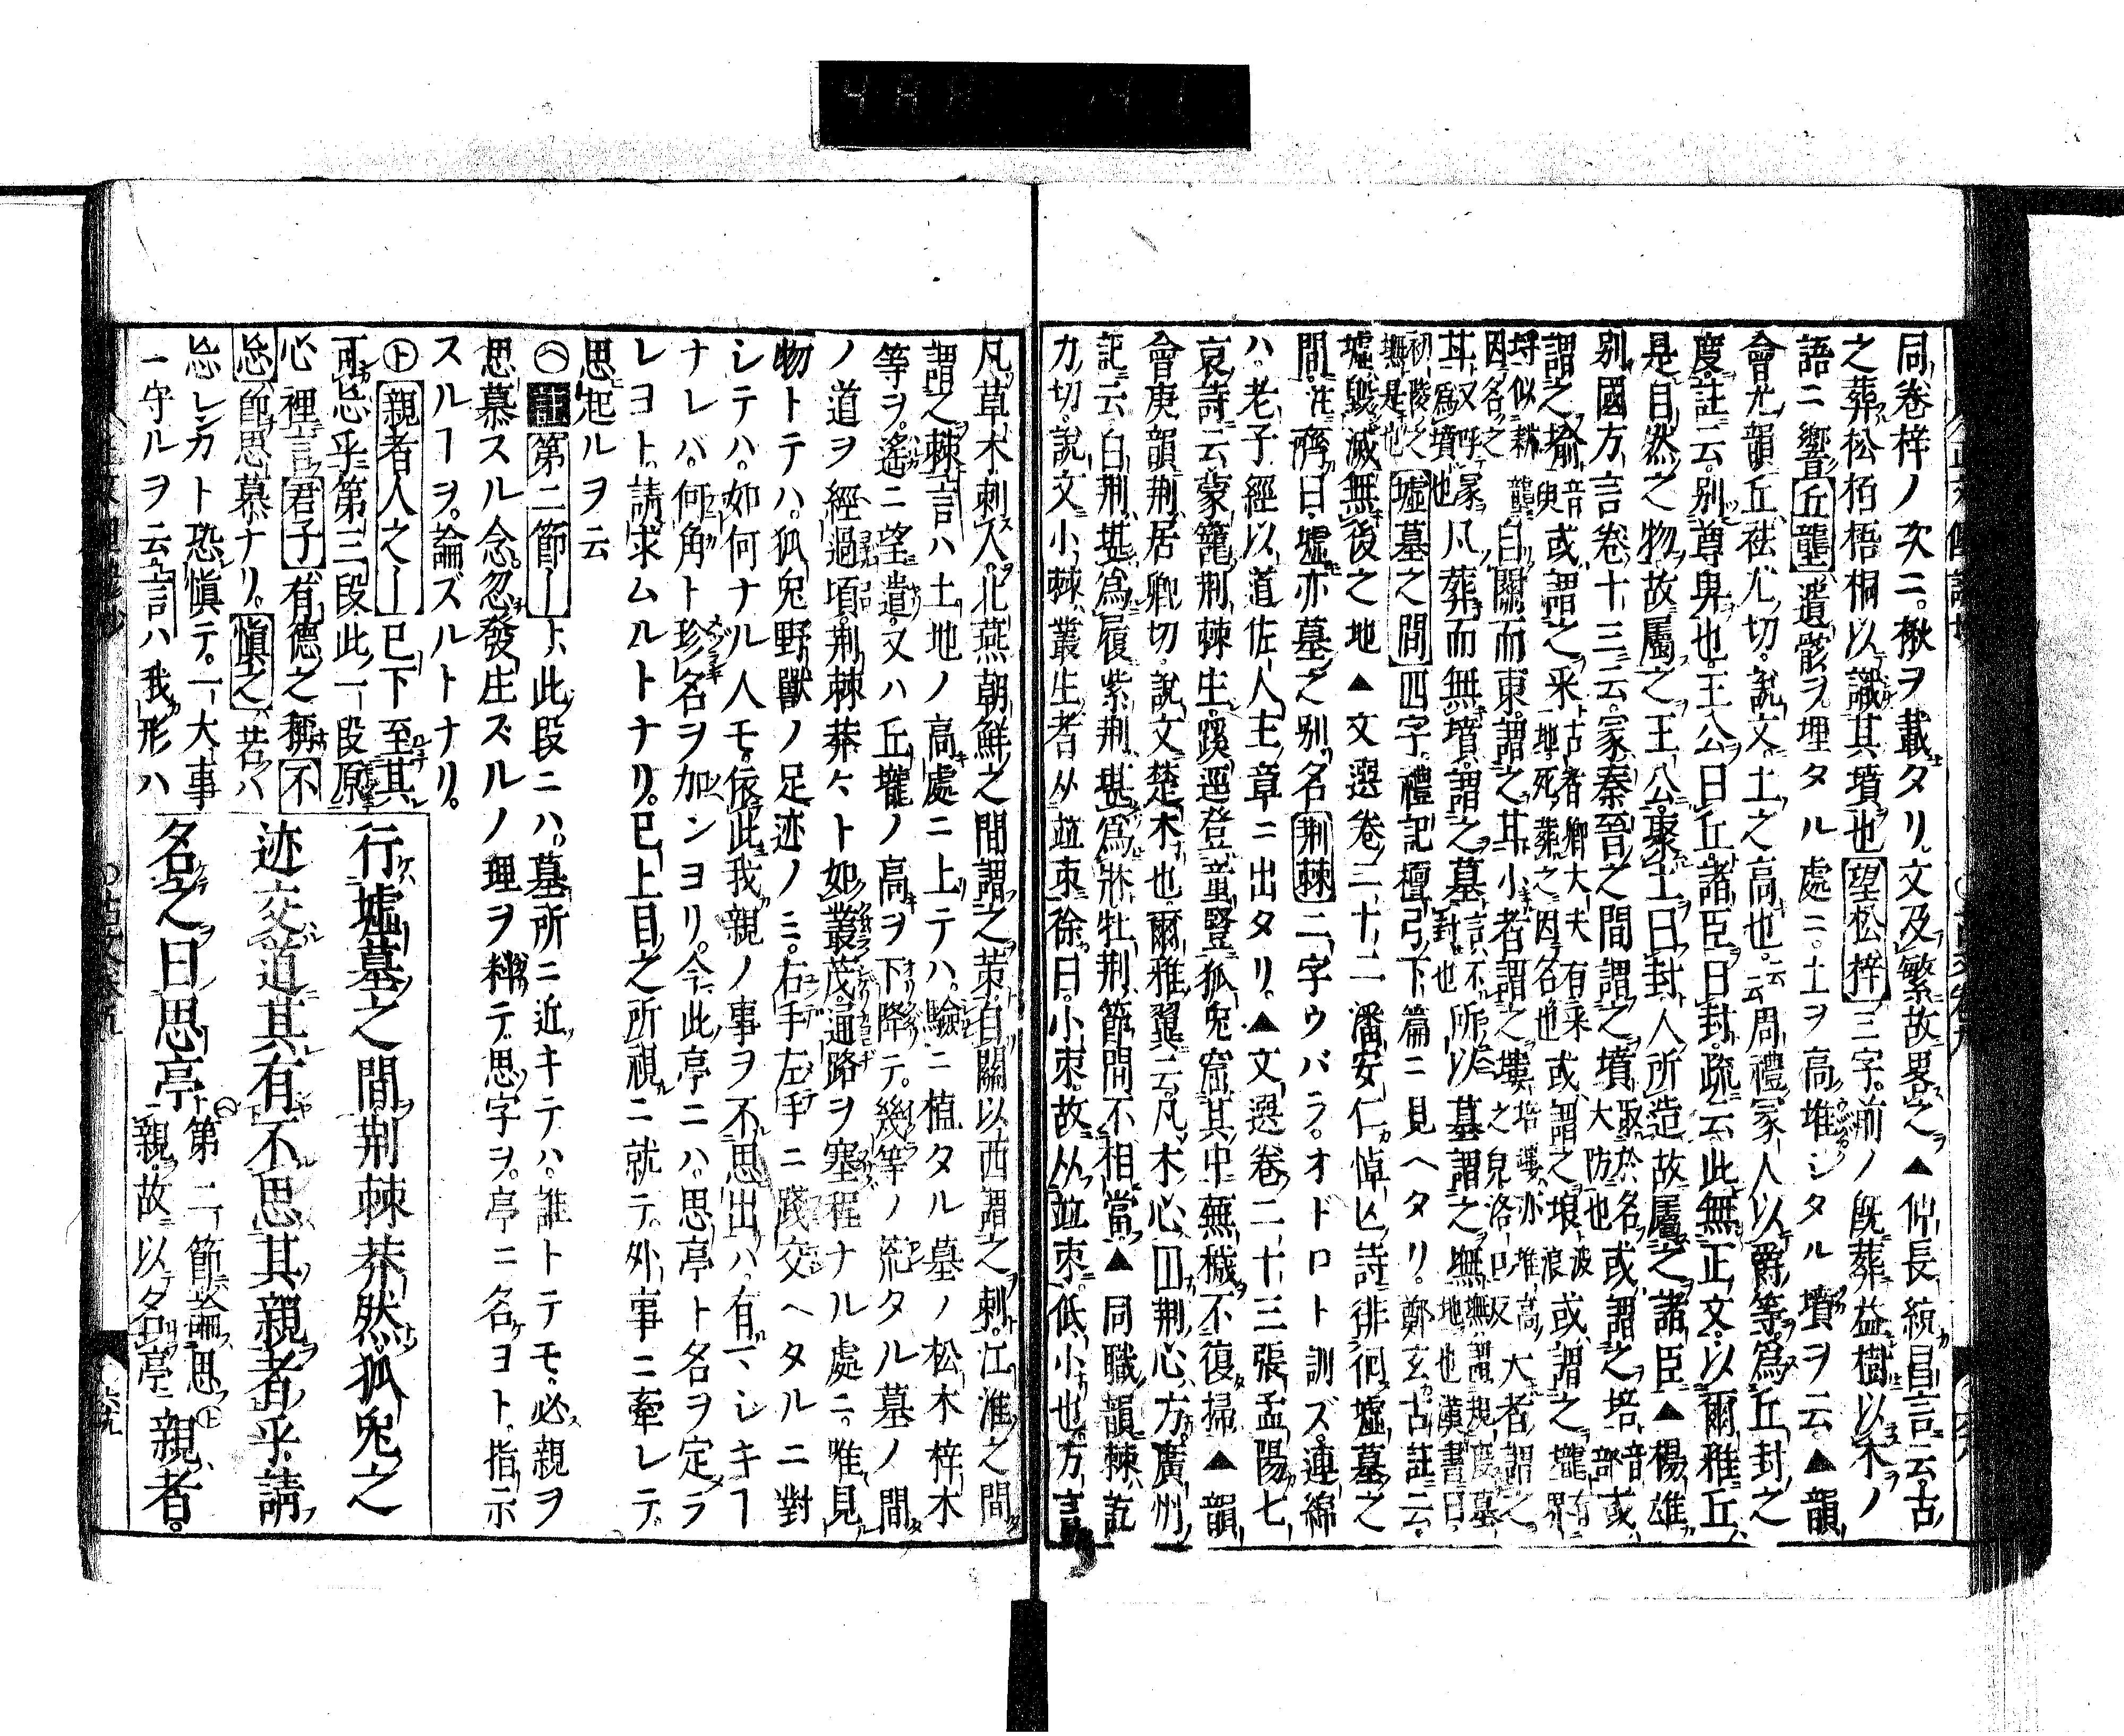 同卷梓ノ次ニ。楸ヲ載タリ。文及繁故畧之▲仲長統昌言云。古
之葬松栢梧桐以識其墳也望松梓三字。前ノ既葬益樹以木ノ
語ニ響丘壟遺骸ヲ埋タル處ニ。土ヲ高堆シタル墳ヲ云。▲韻
會尤韻丘袪尤切。說文。土之高也。云云周禮冢人以爵等爲丘封之
度。註云。別尊卑也。王公曰丘。諸臣曰封。疏云此無正文。以爾雅丘
是自然之物故屬之王公。聚土曰封人所造故屬之諸臣▲楊雄
別國方言卷十三云。冢秦晉之間謂之墳取於名大防也或謂之培音部或
謂之堬音臾或謂之采古者卿大夫有采地死葬之因名也或謂之埌波浪或謂之壠有界
埒似耕壟因名之自關而東謂之其小者謂之塿培塿亦堆高之皃洛口反大者謂之
丘又呼冢爲墳也凡葬而無墳謂之墓言不封也所以墓謂之墲墲謂規度墓地也漢書曰
初陵之墲是也墟墓之間四字。禮記檀弓下篇ニ見ヘタリ。鄭玄古註云。
墟毀滅無後之地▲文選卷二十二潘安仁悼亡詩徘徊墟墓之
間。注濟曰。墟亦墓之別名荆棘二字ウバラ。オドロト訓ズ。連綿
ハ。老子經以道佐人主章ニ出タリ。▲文選卷二十三張孟陽七
哀詩云。蒙籠荆棘生。蹊逕登童豎。狐兎窟其中蕪穢不復掃▲韻
會庚韻荆居卿切。說文楚木也。爾雅翼云。凡木心囗荆心方。廣州
記云。白荆堪爲履紫荆堪爲牀牡荆節間不相當▲同職韻棘訖
力切。說文小棘叢生者从竝朿徐曰。小朿。故从竝朿低小也。方言
凡草木刺人。北燕朝鮮之間謂之茦。自關以西謂之刺。江淮之間
謂之棘言ハ土地ノ高處ニ上テハ。驗ニ植タル墓ノ松木梓木
等ヲ。遙ニ望遣。又ハ丘壠ノ高ヲ下降テ。幾等ノ荒タル墓ノ間
ノ道ヲ經過頃。荆棘莽々ト如叢茂。通路ヲ塞程ナル處ニ。唯見
物トテハ。狐兎野獸ノ足迹ノミ。右手左手ニ踐交ヘタルニ對
シテハ。如何ナル人モ。依此我親ノ事ヲ不思出ハ。有マシキヿ
ナレバ。何角ト珍名ヲ加ンヨリ。今此亭ニハ。思亭ト名ヲ定ラ
レヨト。請求ムルトナリ。已上目之所視ニ就テ。外事ニ牽レテ。
思起ルヲ云
㋬第二節ート此段ニハ。墓所ニ近キテハ。誰トテモ。必親ヲ
思慕スル念。忽發庄ズルノ理ヲ料テ。思字ヲ。亭ニ名ヨト。指示
スルヿヲ。論ズルトナリ。
行墟墓之間荆棘莽然。狐兎之
迹交道其有不思其親者乎請
名之曰思亭第二節論思親故以名亭親者。
㋣親者人之ー已下至其
可忘乎第三段此一段原
心裡言君子有德之稱不
忘節思慕ナリ。愼之若ハ
忘レンカト恐愼テ。一大事
ニ守ルヲ云言ハ我形ハ